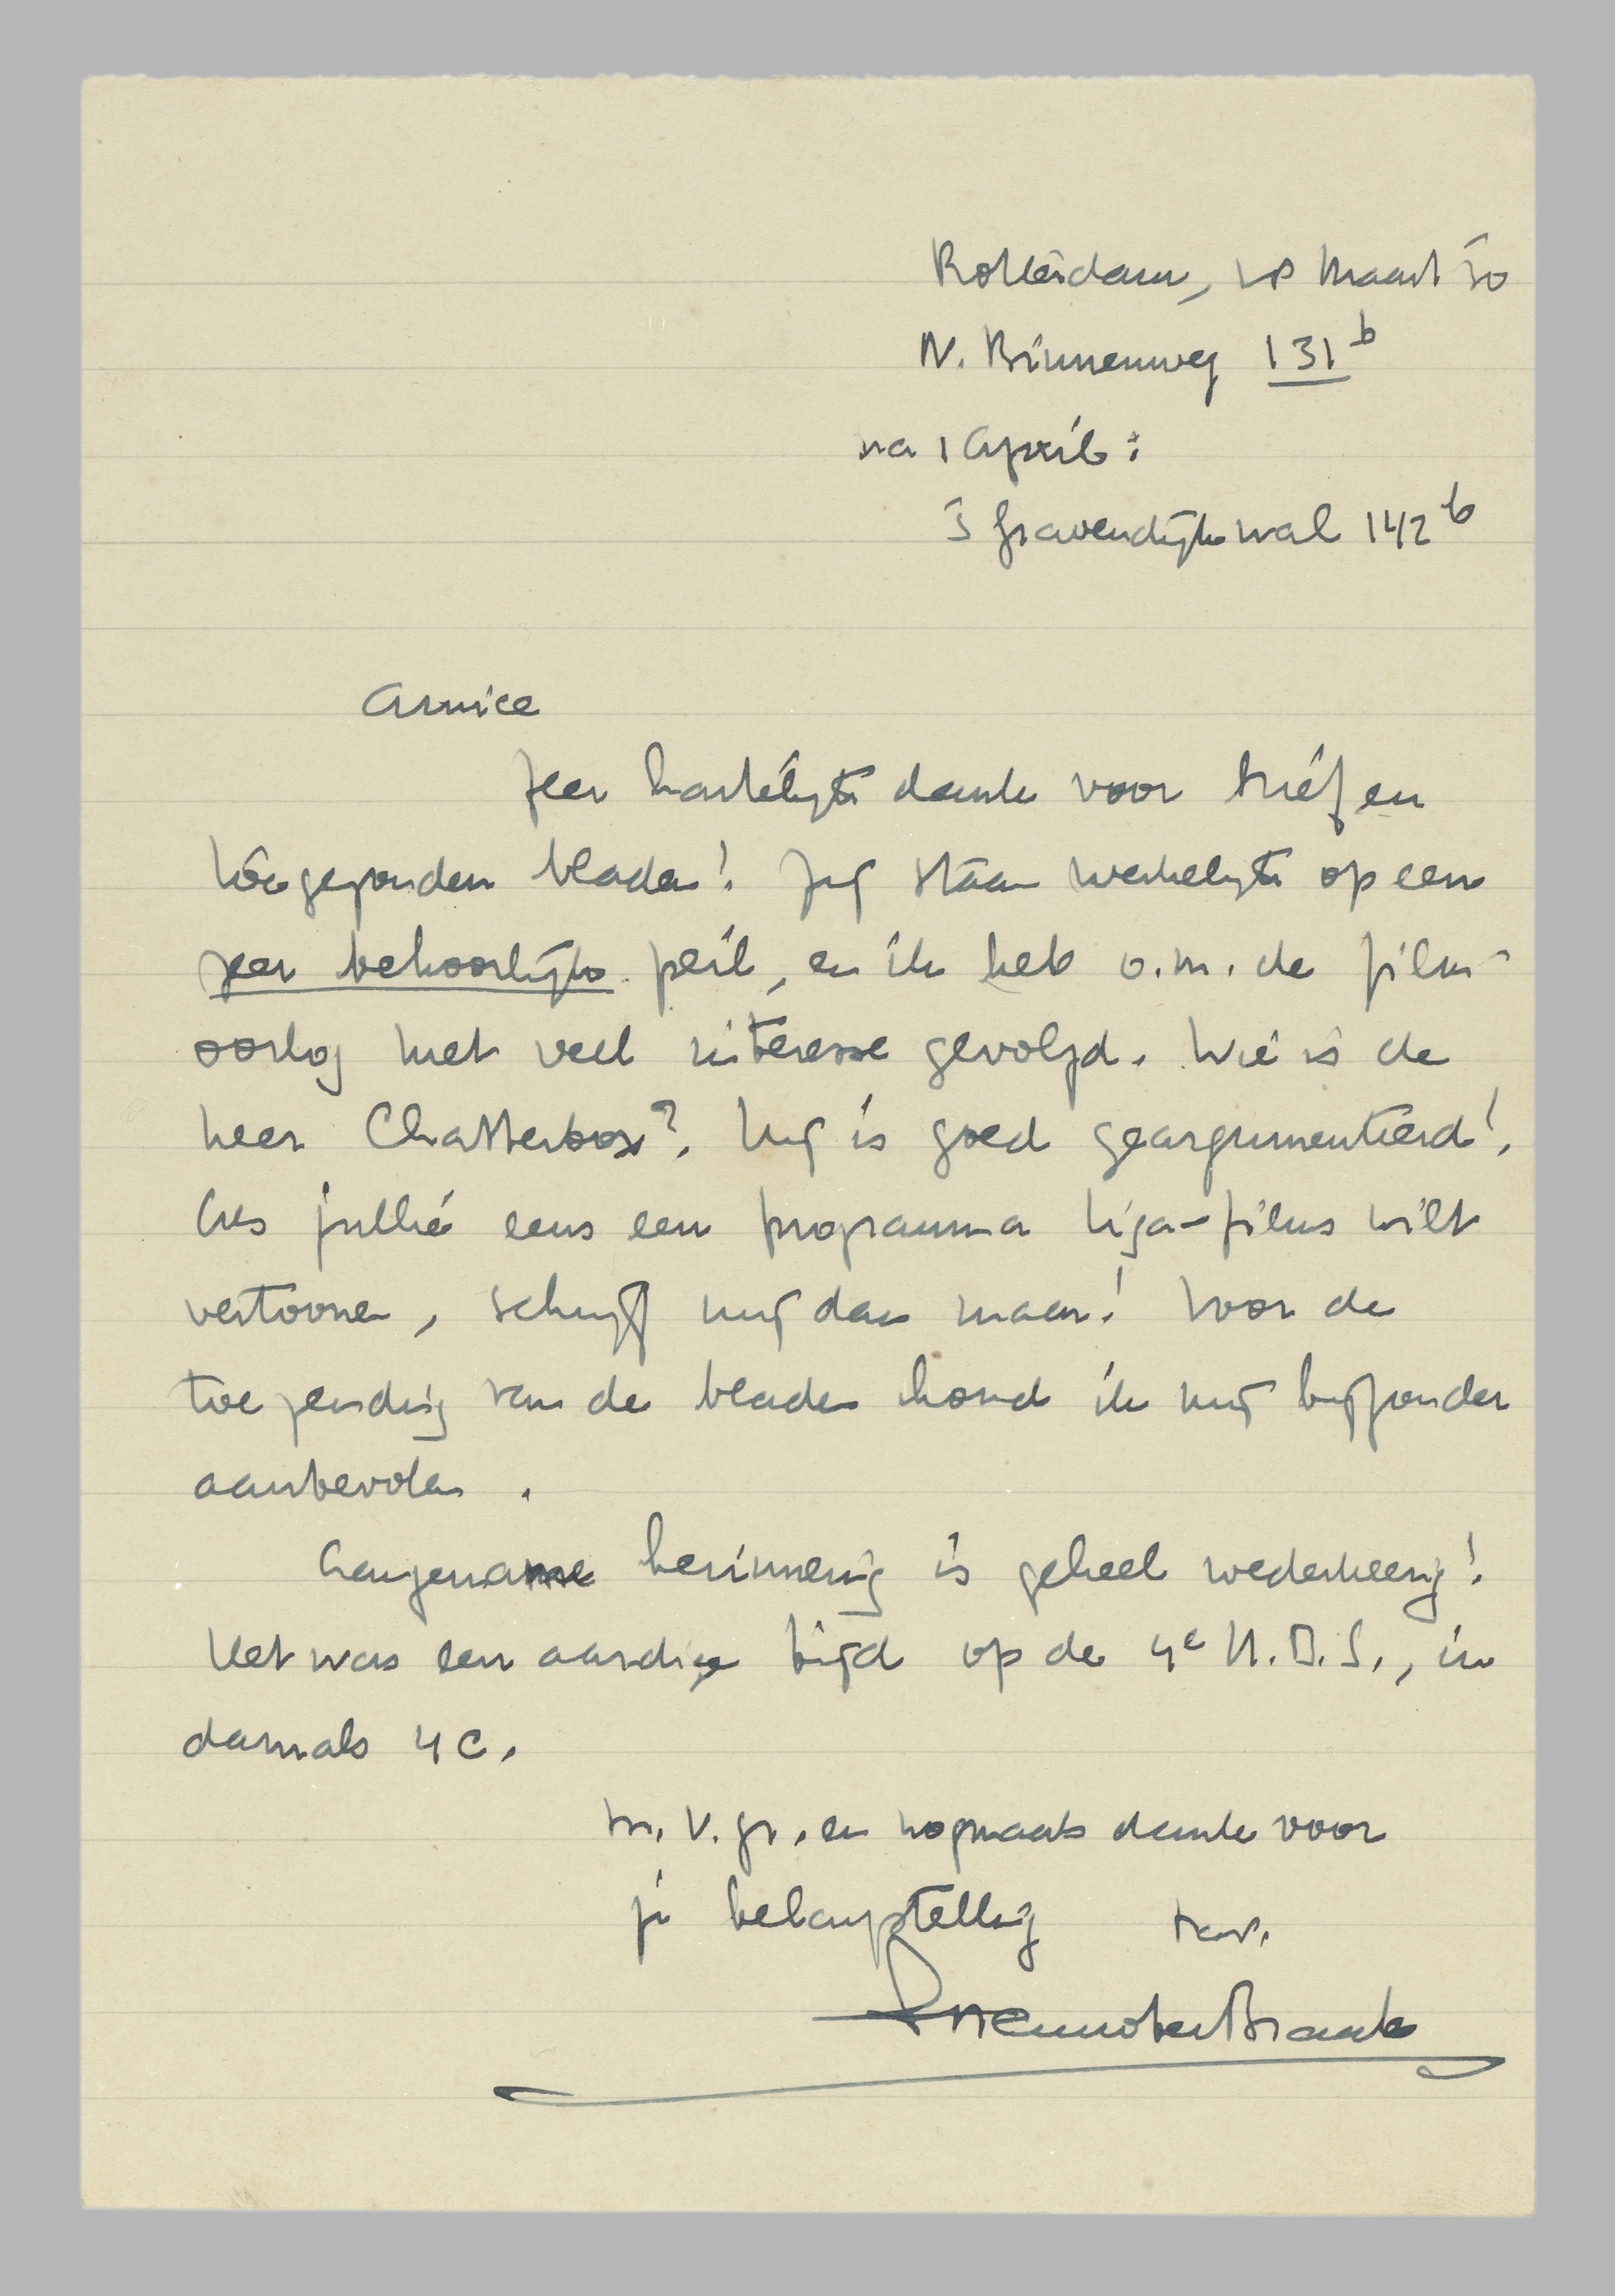 Rotterdam, 28 Maart 30
N. Binnenweg 131b
na 1 April:
's Gravendijkwal 142b
Amice
Zeer hartelijk dank voor brief en
toegezonden bladen! Zij staan werkelijk op een
zeer behoorlijk peil, en ik heb o.m. de film-
oorlog met veel interesse gevolgd. Wie is de
heer Chatterbox? Hij is goed geargumenteerd!
Als jullie eens een programma Liga-films wilt
vertoonen, schrijf mij dan maar! Voor de
toezending van de bladen houd ik mij bijzonder
aanbevolen.
Aangename herinnering is geheel wederkeerig!
Het was een aardige tijd op de 4e H.B.S., in
damals 4c.
m. v. gr. en nogmaals dank voor
je belangstelling
Menno ter Braak